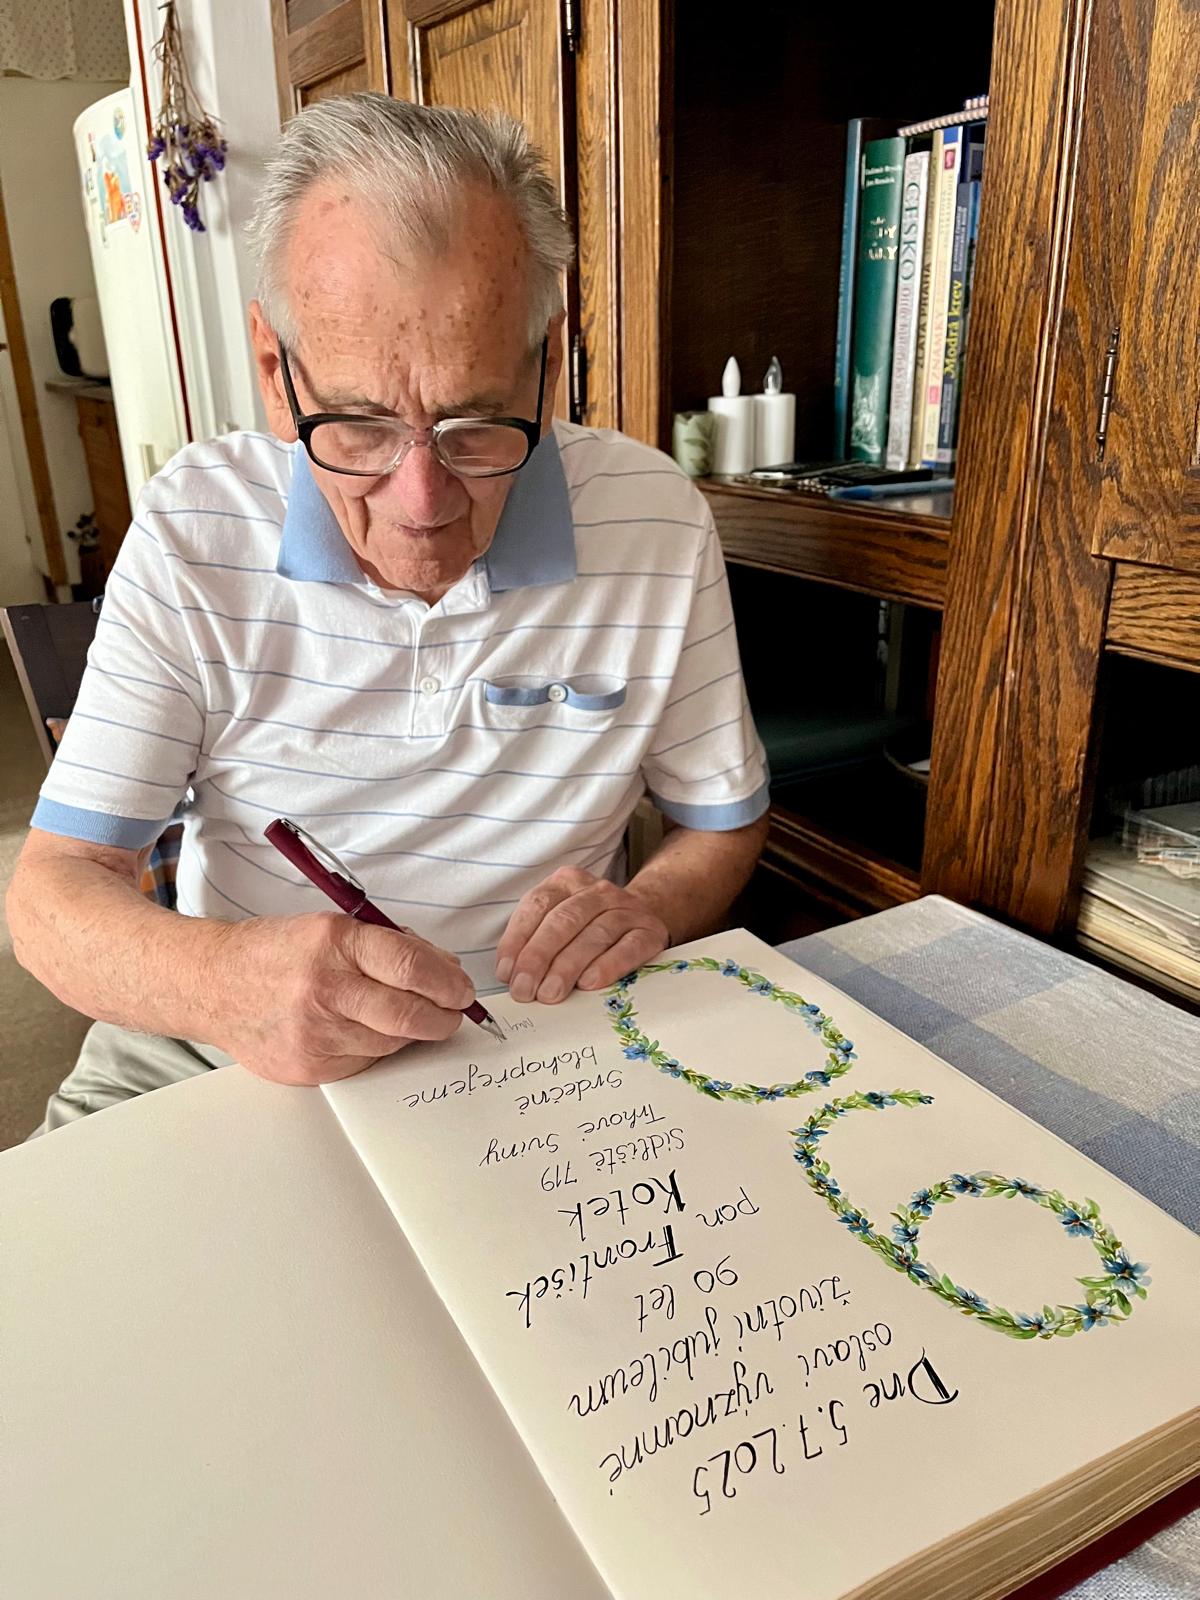 Dne 5.7.2025
oslaví významné
životní jubileum
90 let
pan František
Kotek
Sídliště 719
Trhové Sviny
Srdečně
blahopřejeme.
90
ČESKO
ZLATÁ PRAHA
ZNÁMKY
Modrá krev